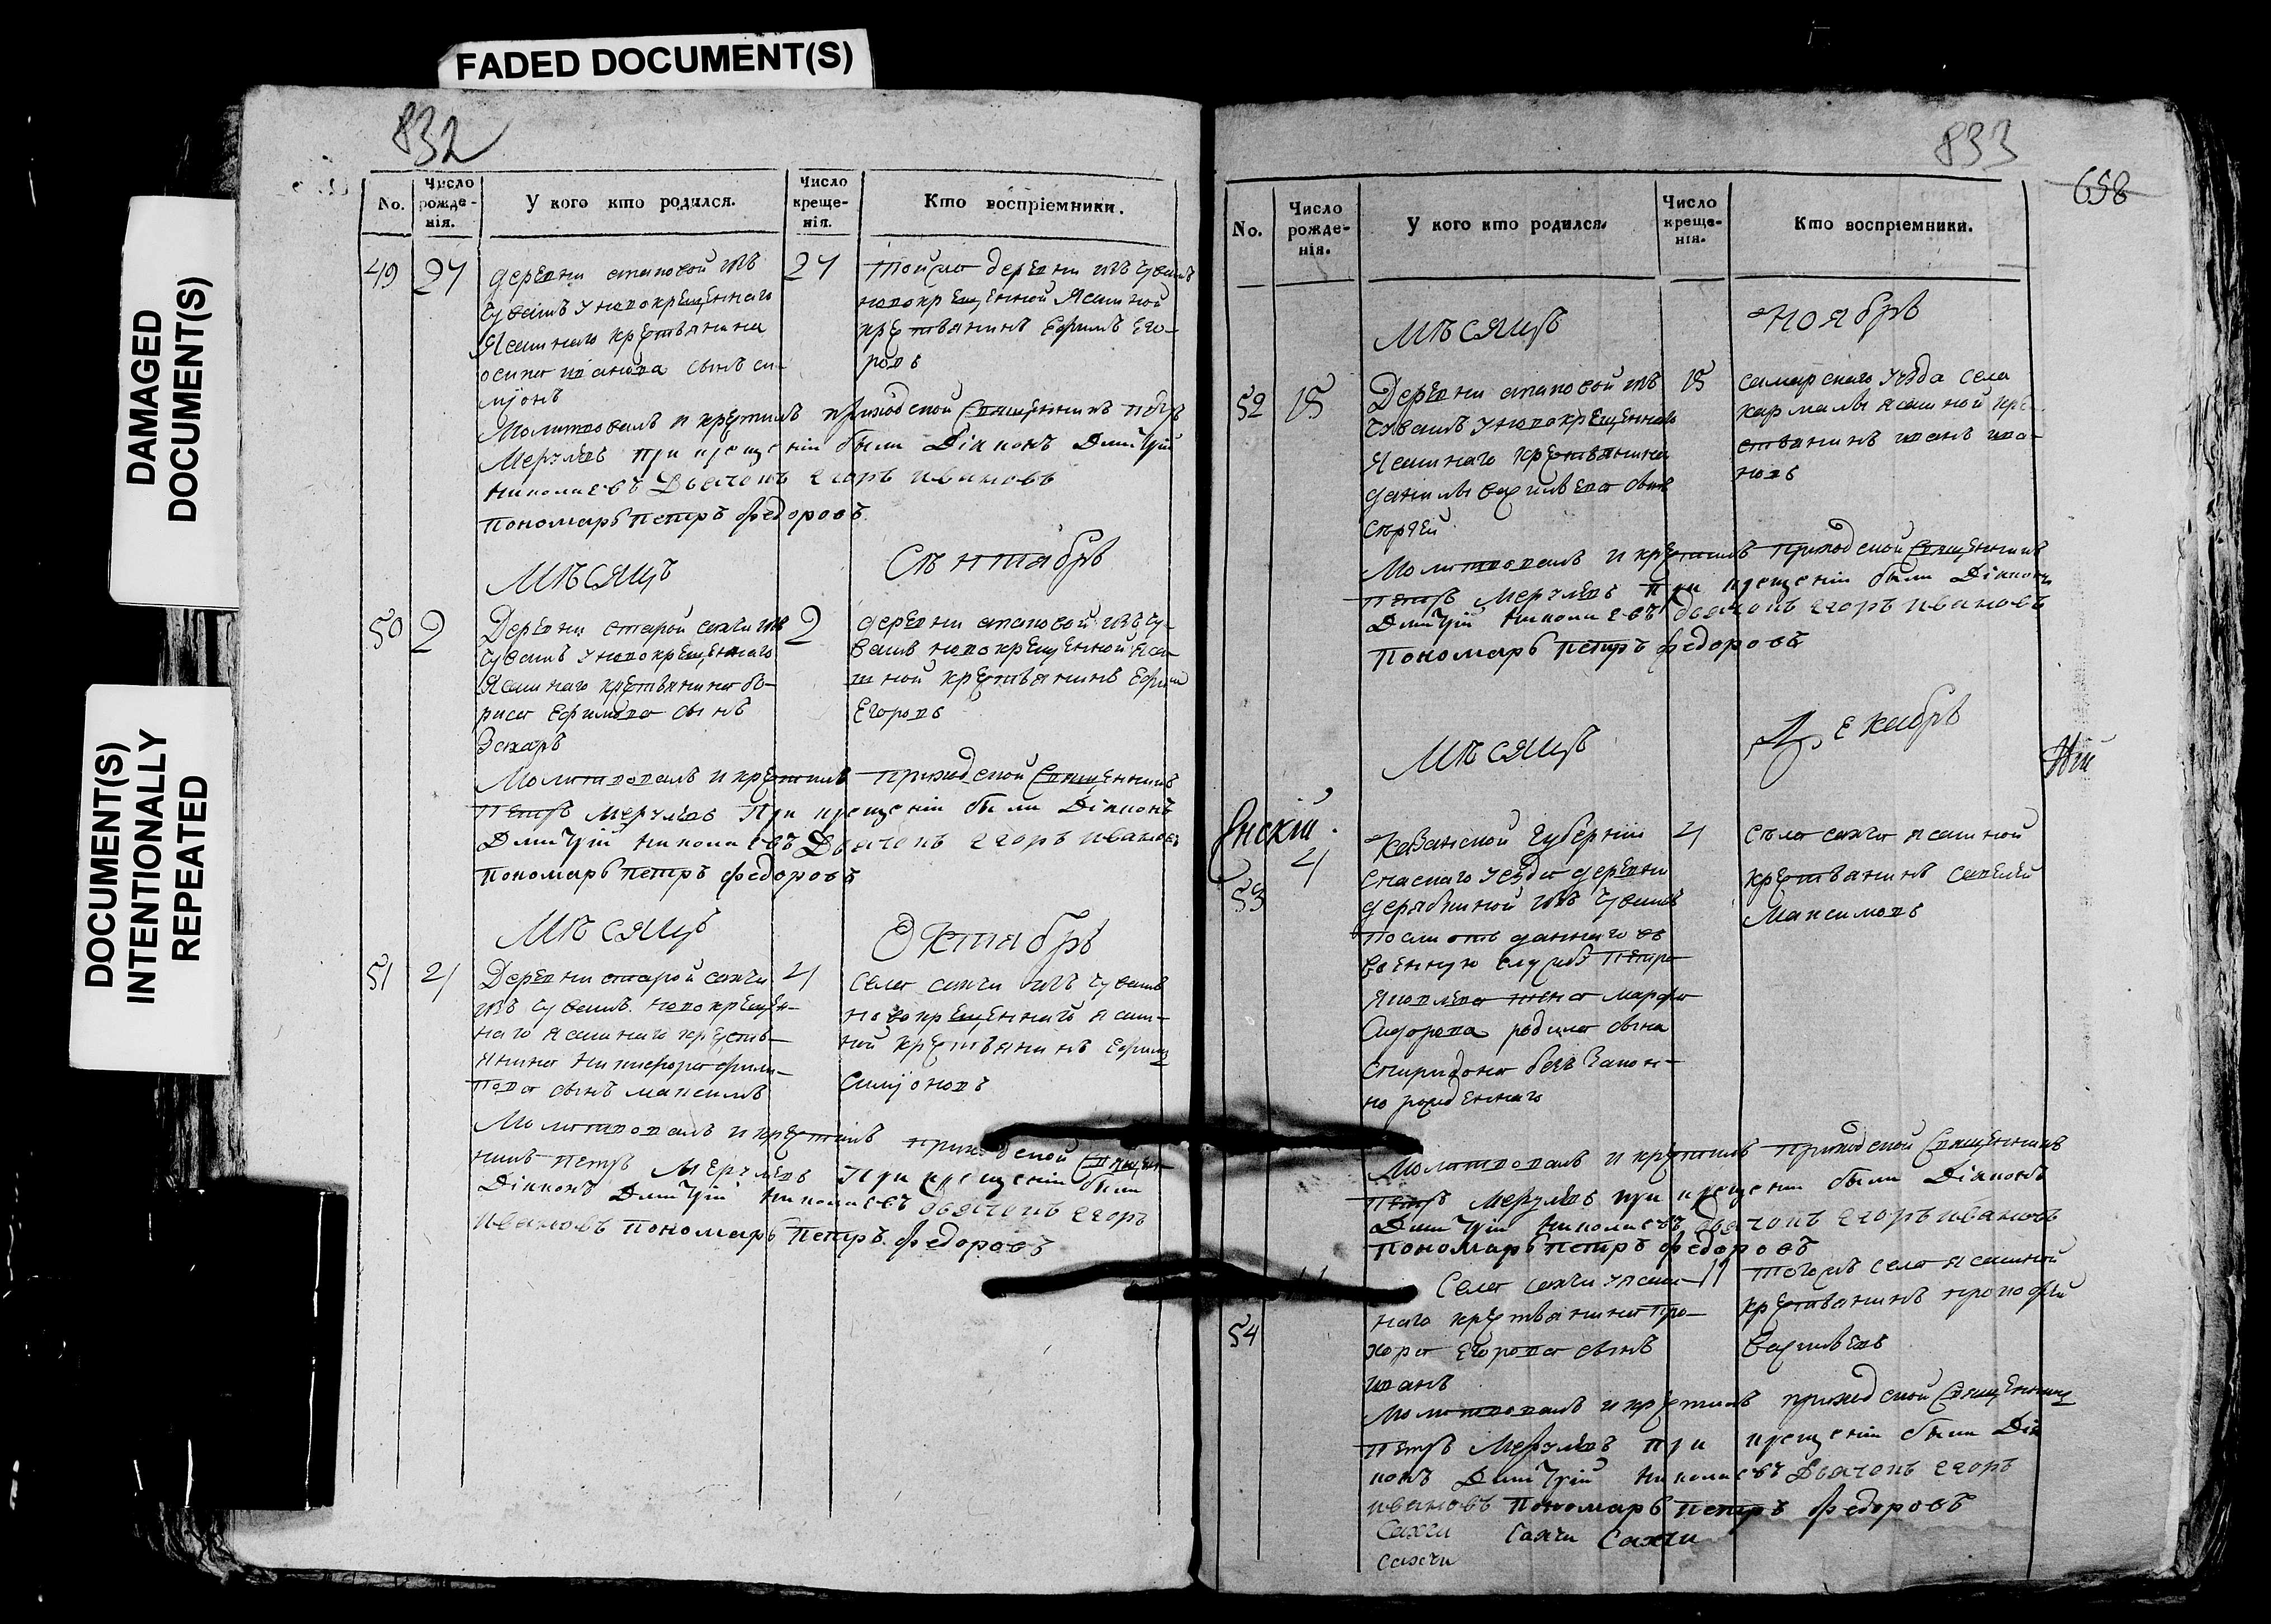 FADED DOCUMENT(S)
DAMAGED
DOCUMENT(S)
DOCUMENT(S)
INTENTIONALLY
REPEATED
832
No.
Число
рожде-
нія.
У кого кто родился.
Число
креще-
нія.
Кто воспріемники.
49 27 деревни аттаповой изъ
чувашъ у новокрещеннаго
Ясашнаго крестьянина
осипа иванова сынъ си-
міонъ
27 тойже деревни изъ чувашъ
новокрещенной Ясашной
крестьянинъ Ефимъ Его-
ровъ
Молитвовалъ и крестилъ приходской Священникъ петръ
Меркульевъ при крещеніи были Діаконъ Димитрій
николаевъ Дьячокъ егоръ ивановъ
пономарь петръ федоровъ
Мѣсяцъ Сентябрь
50 2 Деревни старой сахчи изъ
чувашъ у новокрещеннаго
Ясашнаго крестьянина бо-
риса Ефимова сынъ
Захаръ
2 деревни аттаповой изъ чу-
вашъ новокрещенной яса-
шной крестьянинъ Ефимъ
Егоровъ
Молитвовалъ и крестилъ приходской Священникъ
петръ Меркульевъ При крещеніи были Діаконъ
Димитрій николаевъ Дьячокъ егоръ ивановъ
пономарь петръ федоровъ
Мѣсяцъ Октябрь
51 21 Деревни старой сахчи
изъ чувашъ новокрещен-
наго ясашнаго кресть-
янина никифора фили-
пова сынъ максимъ
21 села сахчи изъ чувашъ
новокрещеннагѡ ясаш-
ной крестьянинъ Ефимъ
Симіоновъ
Молитвовалъ и крестилъ приходской Священ-
никъ петръ Меркульевъ При крещеніи были
Діаконъ Димитрій николаевъ дьячокъ егоръ
ивановъ пономарь петръ федоровъ
833
658
No.
Число
рожде-
нія.
У кого кто родился.
Число
креще-
нія.
Кто воспріемники.
Мѣсяцъ ноябрь
52 15 Деревни аттаповой изъ
чувашъ у новокрещеннаго
Ясашнаго крестьянина
данилы васильева сынъ
сергей
15 самарскаго уѣзда села
кармалы ясашной кре-
стьянинъ иванъ ива-
новъ
Молитвовалъ и крестилъ приходской Священникъ
петръ Меркульевъ При крещеніи были Діаконъ
Димитрій николаевъ дьячокъ егоръ ивановъ
Пономарь петръ федоровъ
Мѣсяцъ Декабрь
53 21 казанской губерніи
спаскаго уезда деревни
изъ чувашъ
после отъ даннаго въ
военную службу петра
яковлева жена марфа
сидорова родила сына
спиридона безъ закон-
но рожденнаго
21 села сахчи ясашной
крестьянинъ савелей
Максимовъ
Молитвовалъ и крестилъ приходской Священникъ
петръ Меркульевъ при крещеніи были Діаконъ
Димитрій николаевъ дьячокъ егоръ ивановъ
пономарь петръ федоровъ
54 Села сахчи у ясаш-
наго крестьянина про-
хора Егорова сынъ
иванъ
тогожъ села ясашной
крестьянинъ прокофей
васильевъ
Молитвовалъ и крестилъ приходской Священникъ
петръ Меркульевъ при крещеніи были Діа
конъ Димитрій николаевъ Дьячокъ егоръ
ивановъ пономарь петръ федоровъ
Сахчи Сахчи Сахчи
сахчи